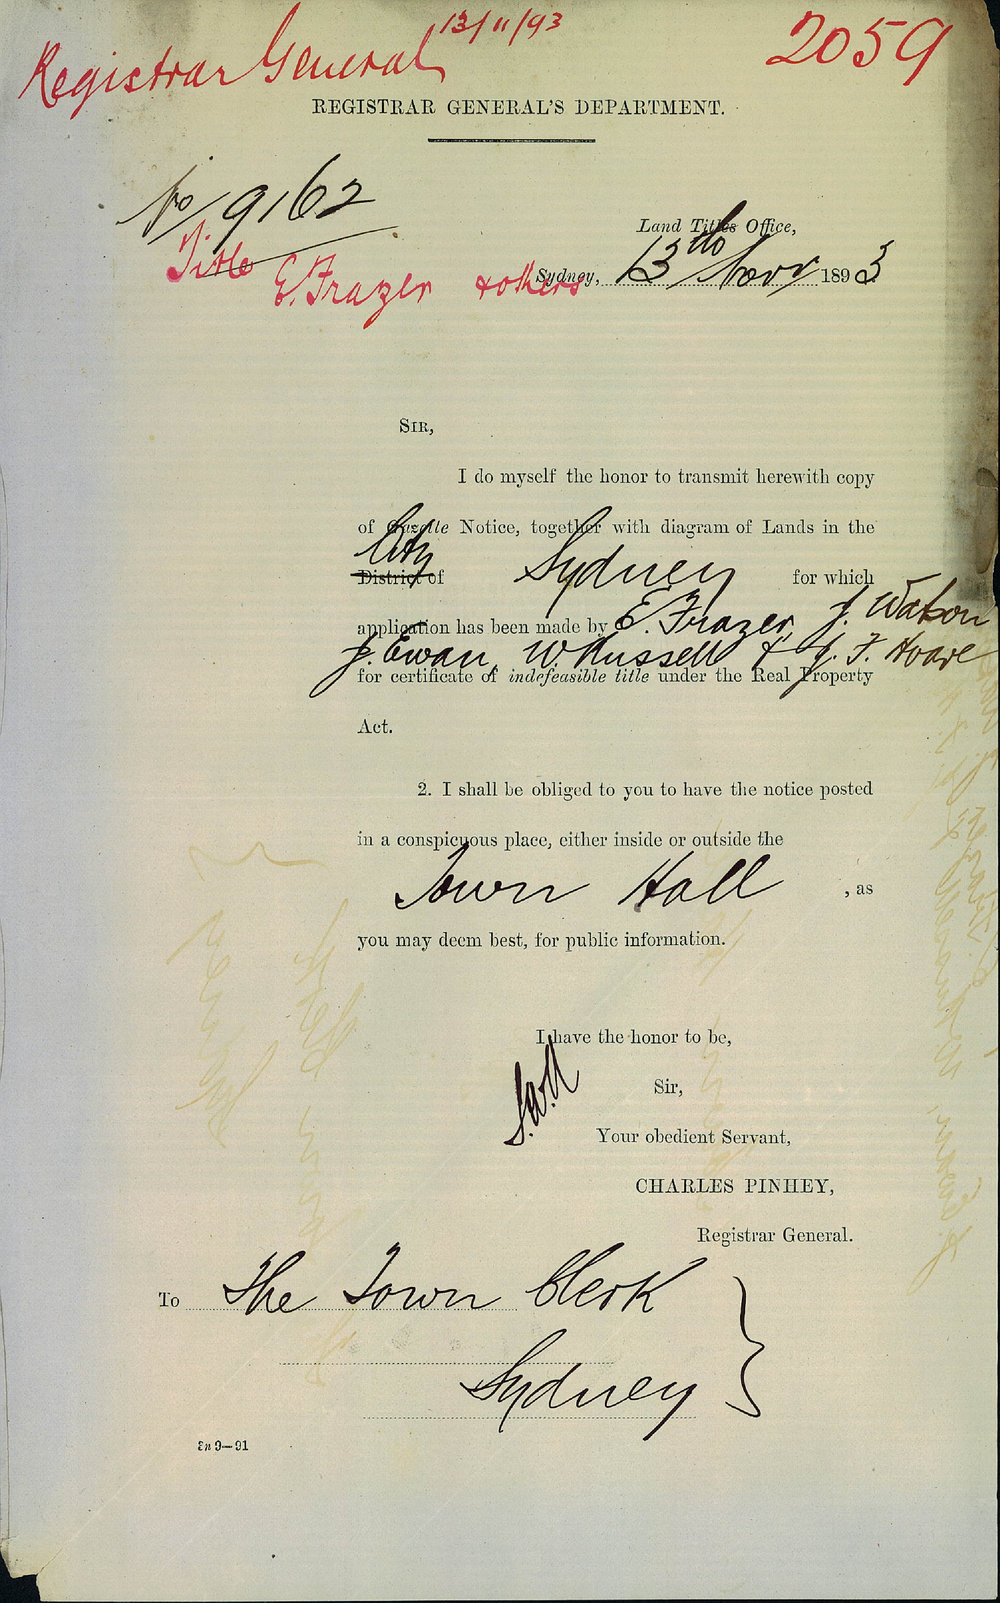 Registrar General 13/11/93
2059
REGISTRAR GENERAL'S DEPARTMENT.
No 9162
Title
E. Frazer & others
Land Titles Office,
Sydney, 13th Novr 1893
SIR,
I do myself the honor to transmit herewith copy
of Gazette Notice, together with diagram of Lands in the
City
District of Sydney for which
application has been made by E. Frazer, J. Watson
J. Ewan, W. Russell & J. F. Hoare
for certificate of indefeasible title under the Real Property
Act.
2. I shall be obliged to you to have the notice posted
in a conspicuous place, either inside or outside the
Town Hall , as
you may deem best, for public information.
I have the honor to be,
Sir,
Your obedient Servant,
CHARLES PINHEY,
Registrar General.
To The Town Clerk
Sydney
9—91